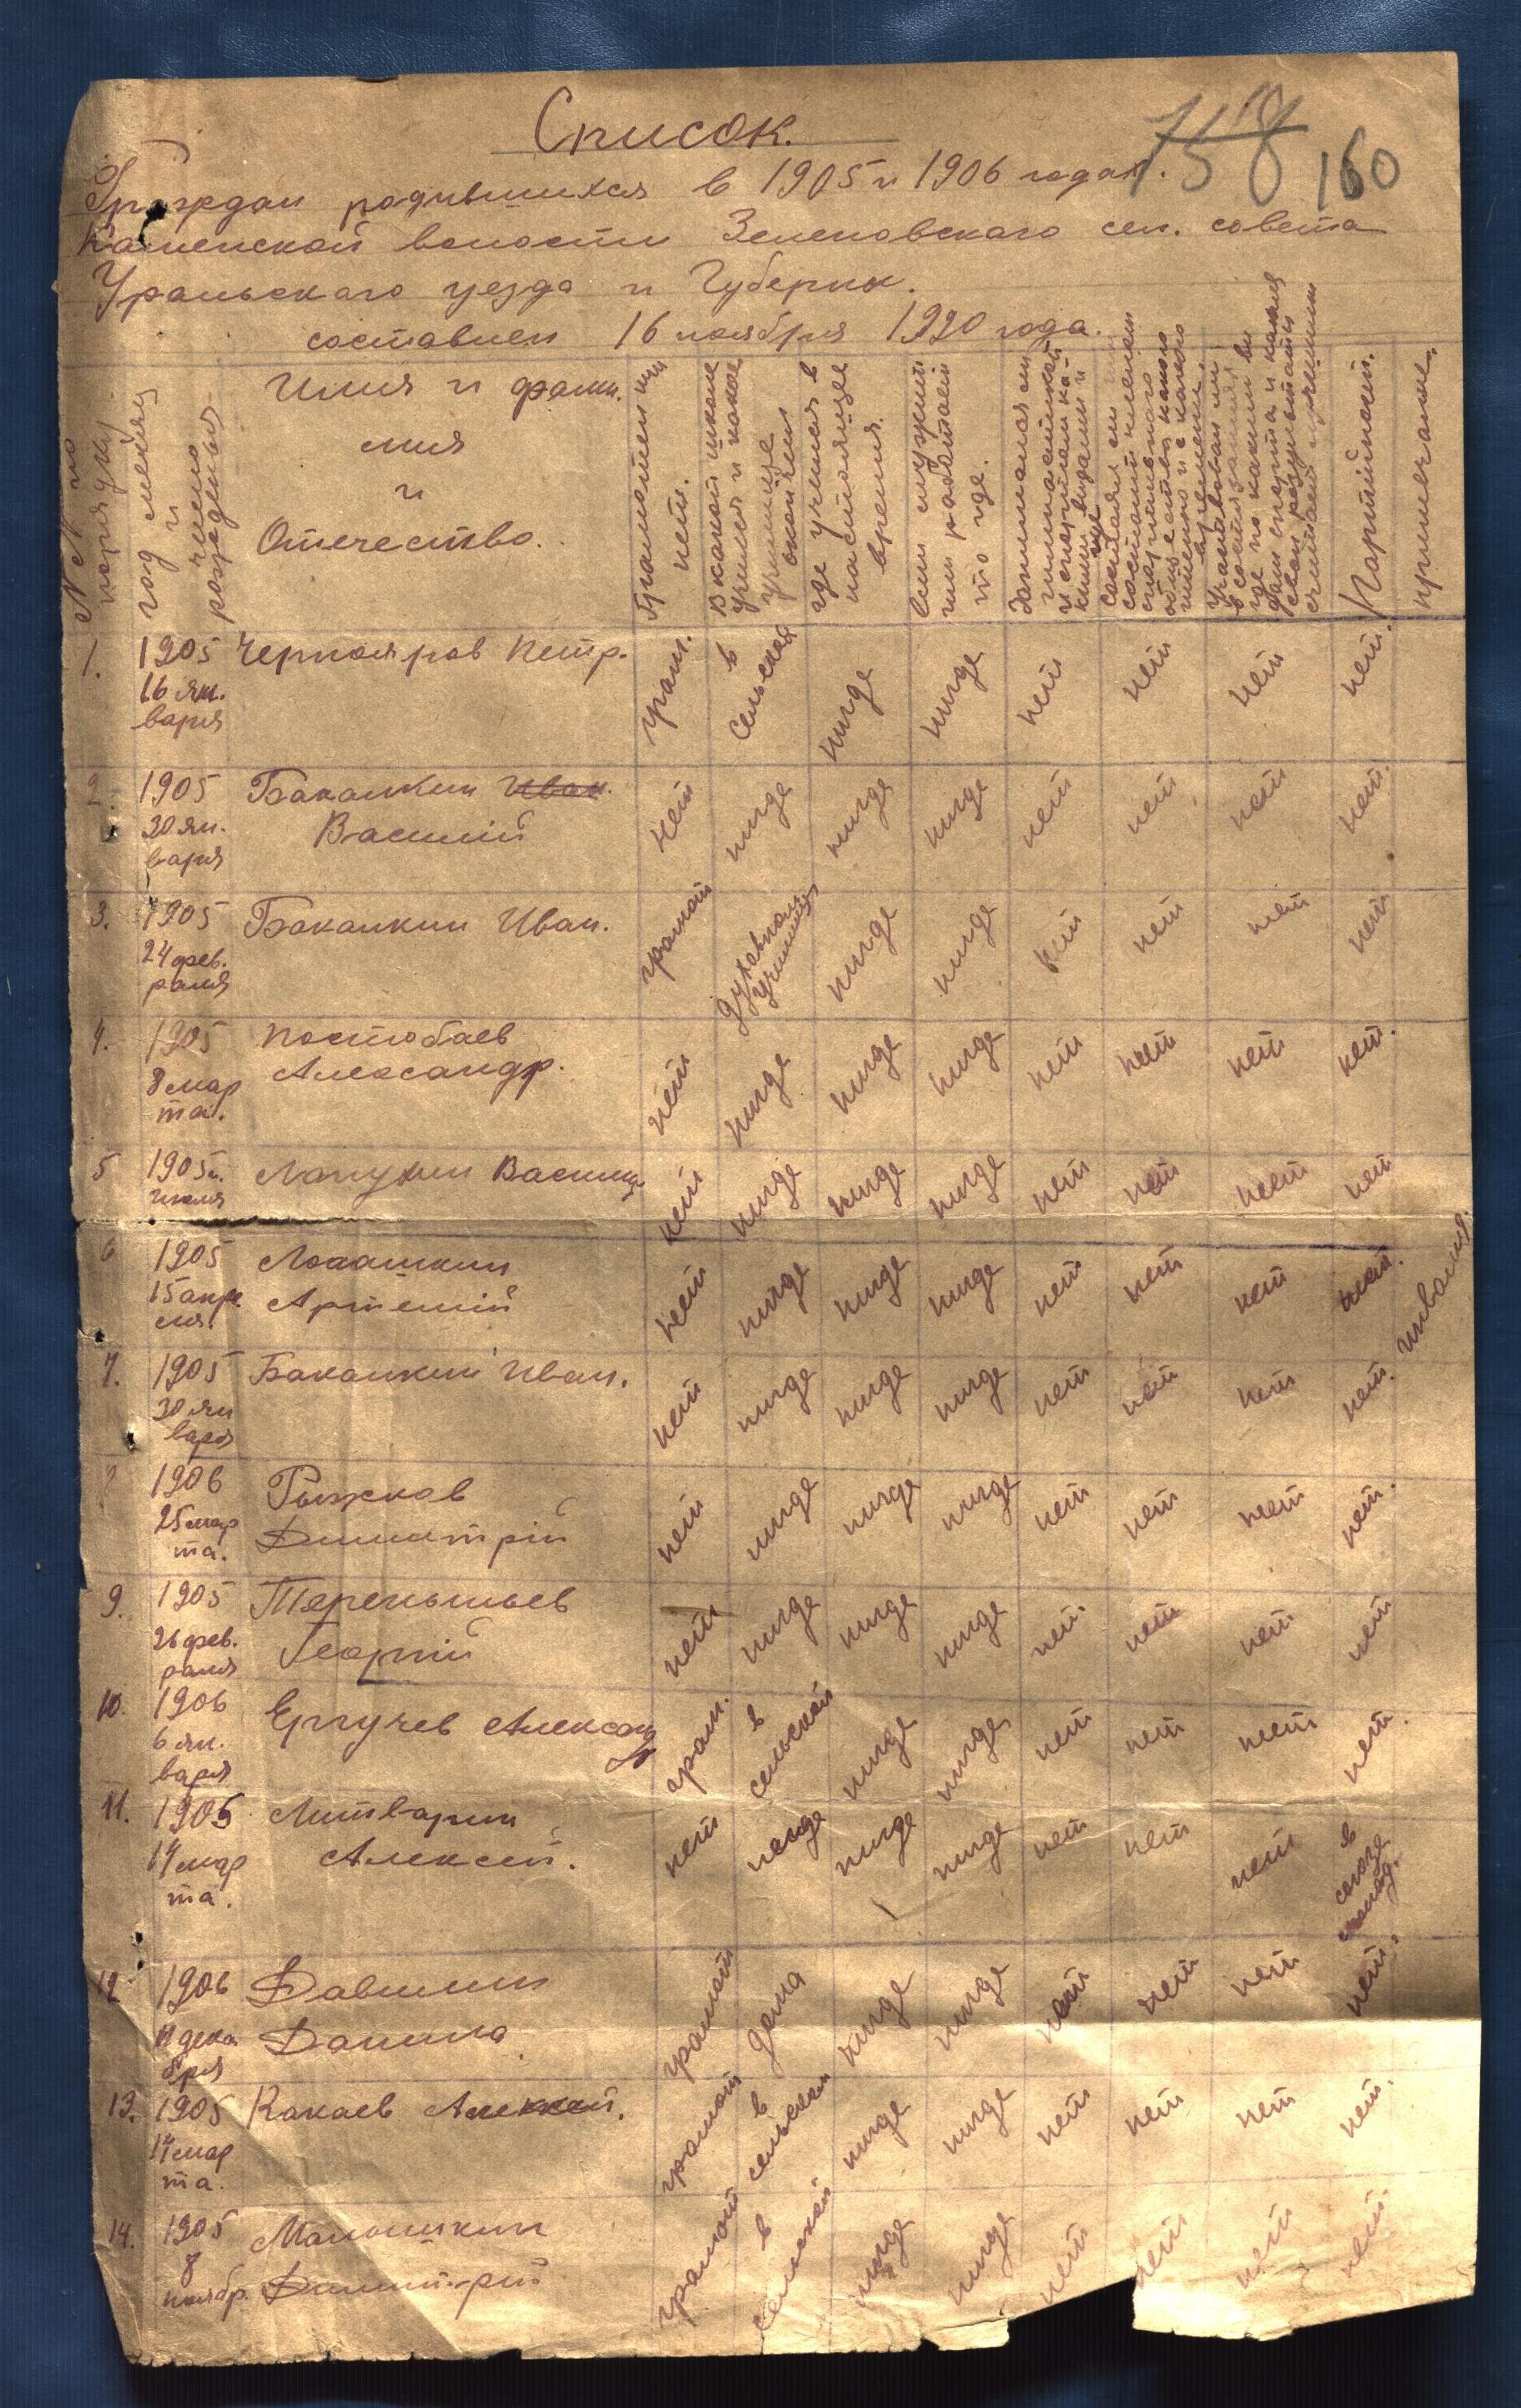 Список.
758 160
Граждан родившихся в 1905 и 1906 годах.
Каменской волости Зеленовского сел. совета
Уральского уезда и Губерни.
составлен 16 ноября 1920 года.
№ № по порядку
год месяц и число рождения
Имия и фами.
лия
и
Отечество.
Грамотен или нет.
В какой школе учился и какое училище окончил
где учился в настоящее время.
Если служит или работает то где.
Занимался ли гимнастикой и спортом какими видами и где
Состоял ли состоит членом спортивного общества какого имено и с какого времени.
Участвовал ли в состязаниях где по каким видам спорта и какия свои результаты считает лучшими
Партийност.
примечание.
1. 1905 Чернояров Петр. грам. в сельской нигде нигде нет нет нет нет.
16 ян.
варя
2. 1905 Бакалкин Иван. нет нигде нигде нигде нет нет нет нет.
30 ян. Василий
варя
3. 1905 Бакалкин Иван. грамот духовном училище нигде нигде нет нет нет нет
24 фев.
раля
4. 1905 Постобаев нет нигде нигде нигде нет нет нет нет.
8 мар Александр.
та.
5 1905 Лапухин Васили нет нигде нигде нигде нет нет нет нет
июля
6 1905 Локашкин нет нигде нигде нигде нет нет нет нет. инвалид.
15 апре Артемий
ля.
7. 1905 Бакалкин Иван. нет нигде нигде нигде нет нет нет нет.
30 ян
варя
8 1906 Рыжков нет нигде нигде нигде нет нет нет нет.
25 мар Димитрий
та.
9. 1905 Терентьев нет нигде нигде нигде нет. нет нет нет
26 фев. Георгий
раля
10. 1906 Ергучев Александр грам. в сельской нигде нигде нет нет нет нет.
6 ян.
варя
11. 1906 Литварин нет негде нигде нигде нет нет нет в союзе молод.
14 мар Алексей.
та.
12 1906 Давилин грамот дома нигде нигде нет нет нет нет.
11 дека Данила.
бря
13. 1905 Какаев Алексей. грамот в сельской нигде нигде нет нет нет нет.
14 мар
та.
14. 1905 Малошкин грамот в сельской нигде нигде нет нет нет нет.
8 Димитрий
ноябр.